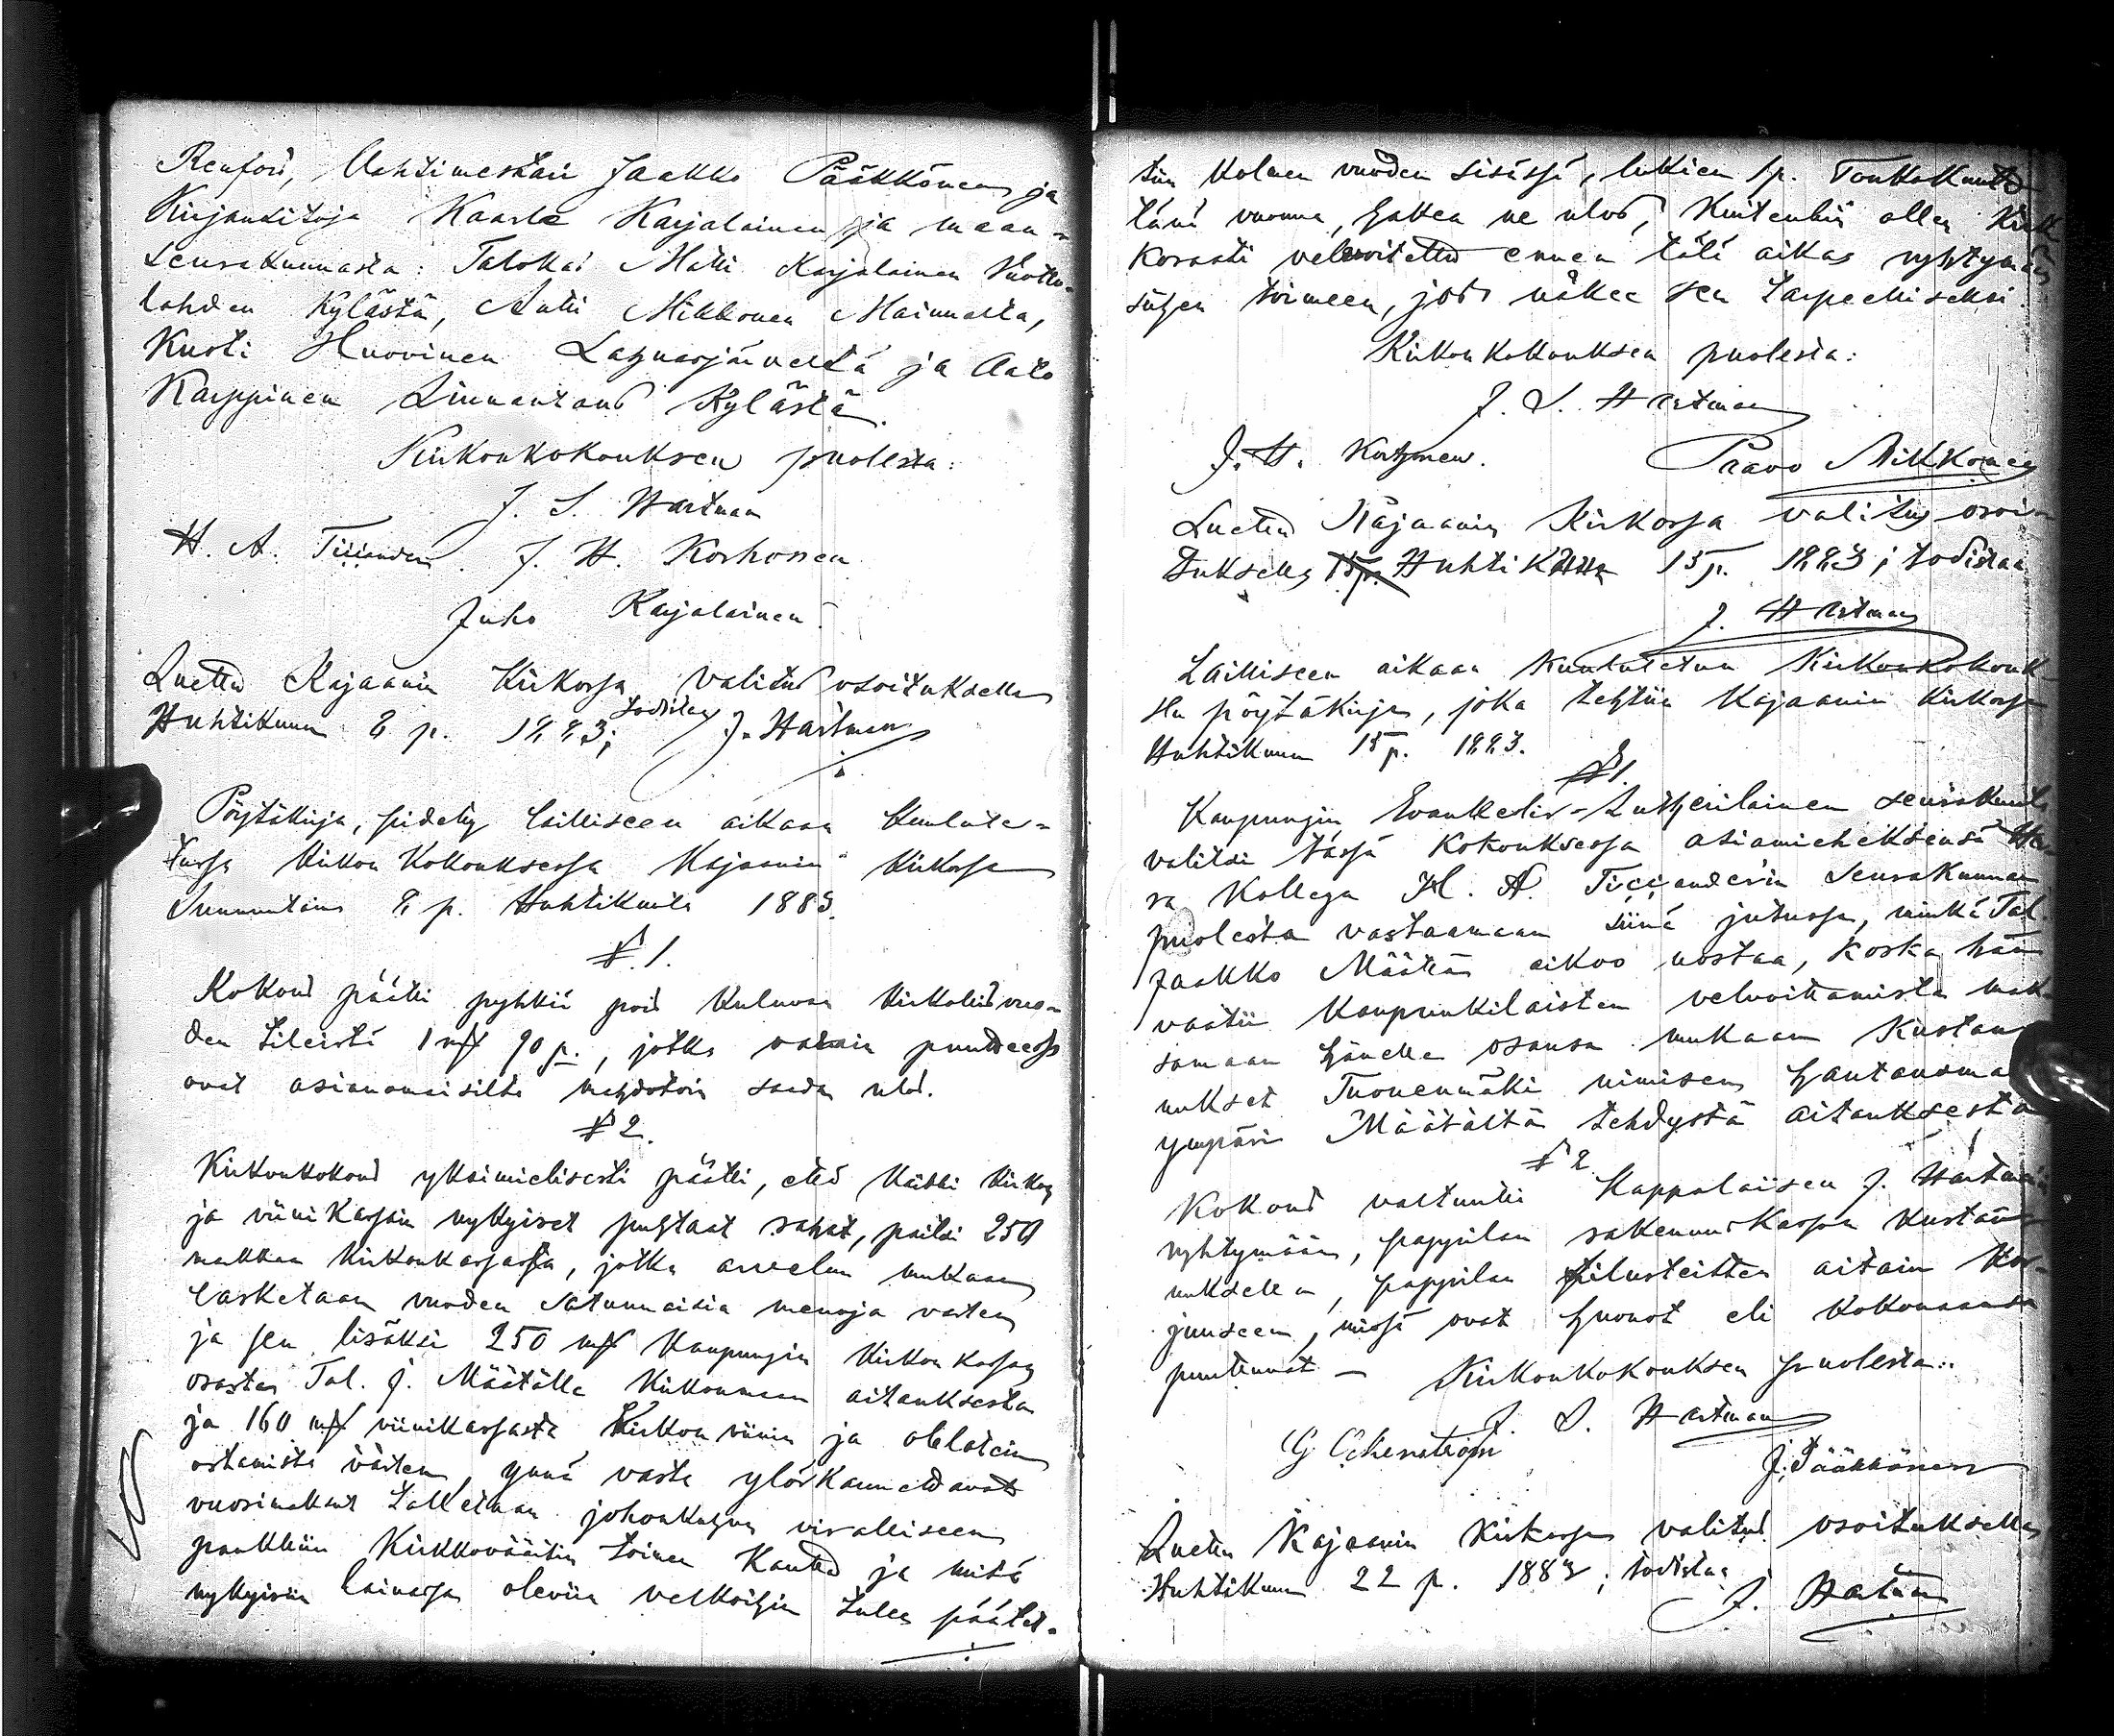 Renfors, Vahtimestari Jaakko Pääkkönen ja
Kirjansitoja Kaarle Karjalainen ja maan-
seurakunnasta: Talokas Matti Karjalainen Vuotto-
lahden Kylästä, Antti Mikkonen Mainualta,
Kusti Huovinen Lahnasjärveltä ja Aato
Karppinen Linnantaus Kylästä.
Kirkonkokouksen puolesta:
J. S. Hartman
H. A. Ticcander. J. H. Korhonen
Juho Karjalainen.
Luettu Kajaanin Kirkossa valitus osoituksella
Huhtikuun 8 p. 1883; todistaa J. Hartman
Pöytäkirja, pidetty lailliseen aikaan kuulute-
tussa kirkon Kokouksessa Kajaanin Kirkossa
Sunnuntaina 8 p. Huhtikuuta 1883.
§. 1.
Kokous päätti pyhkiä pois kuluvan kirkolisvuo-
den tileistä 1 mk 90 p., jotka varain puutteessa
ovat asianomaisilta mahdotoin saada ulos.
§ 2.
Kirkonkokous yksimielisesti päätti, että kaikki kirkon
ja viinikassain nykyiset puhtaat rahat, paitsi 250
markkaa kirkonkassassa, jotka arvelun mukaan
lasketaan vuoden satunnaisia menoja varten
ja sen lisäksi 250 mk Kaupungin kirkon kassan
osasta Tal. J. Määtälle kirkonmaan aitauksesta
ja 160 mk viinikassasta Kirkon viinin ja oblatein
ostamista varten, ynnä vasta ylöskannettavat
vuosimaksut talletaan johonkuhun viralliseen
pankkiin Kirkkoväärtin toimen kautta ja mitä
nykyisin lainassa oleviin velkoihin tulee päätet-
tiin kolmen vuoden sisässä, lukien 1 p. Toukokuuta
tänä vuonna, hakea ne ulos, Kuitenkin ollen Kirk-
koraati velvoitettu ennen tätä aikaa ryhtymään
siihen toimeen, jos näkee sen tarpeelliseksi.
Kirkonkokouksen puolesta:
J. S. Hartman
J. H. Korhonen. Paavo Mikkonen
Luettu Kajaanin Kirkossa valitus osoi-
tuksella 15 p. Huhtikuun 15 p. 1883; todistaa
J. Hartman
Lailliseen aikaan kuulutetun Kirkonkokouk-
sen pöytäkirja, joka tehtiin Kajaanin Kirkossa
Huhtikuun 15 p. 1883.
§ 1.
Kaupungin Evankelis-Lutherilainen seurakunta
valitsi tässä Kokouksessa asiamieheksensä Her-
ra Kollega H. A. Ticcander'in Seurakunnan
puolesta vastaamaan siinä jutussa, minkä Tal.
Jaakko Määttä aikoo nostaa, koska hän
vaatii Kaupunkilaisten velvoittamista mak-
samaan hänelle osansa mukaan Kustan-
nukset Tuonenmäki nimisen hautausmaan
ympäri Määtältä tehdystä aitauksesta
§ 2.
Kokous valtuutti Kappalaisen J. Hartman'in
ryhtymään, pappilan rakennuskassan kustan-
nuksella, pappilan pilusteitten aitain kor-
jauseen, missä ovat huonot eli kokonaan
puuttuvat – Kirkonkokouksen puolesta:
J. S. Hartman
G Ockenström J. Pääkkönen
Luettu Kajaanin Kirkossa valitus osoituksella
Huhtikuun 22 p. 1883; todistaa
J. Hartman